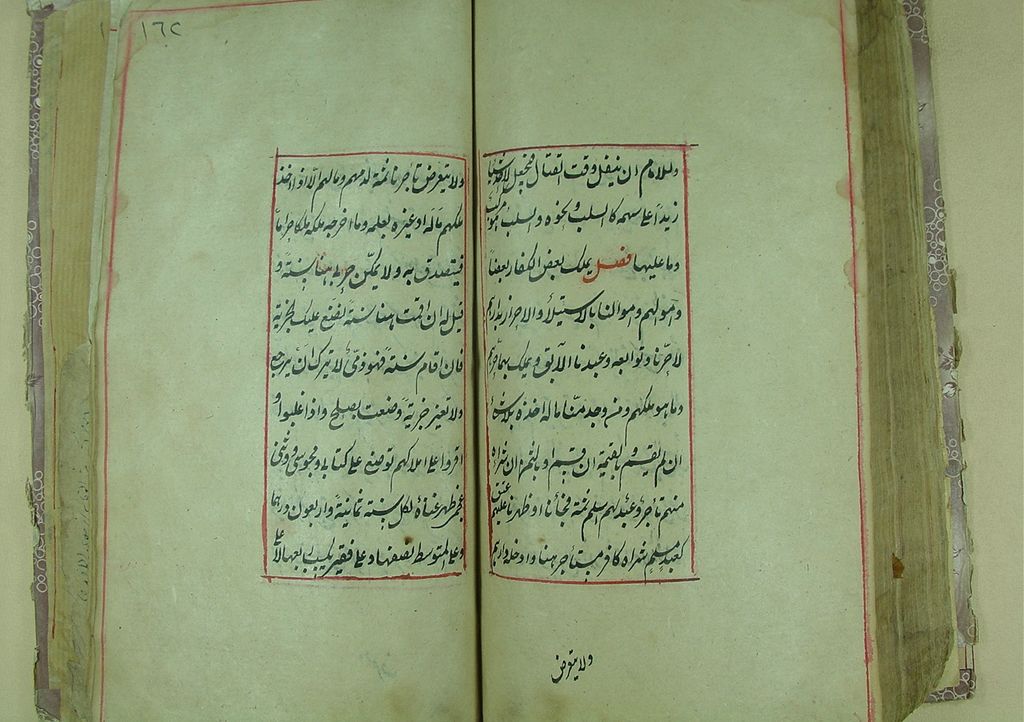 ١٦٢
وللامام ان ينفل وقت القتال فيجعل لاحد شيئا
زيدا على سهمه كالسلب ونحوه والسلب مركبه
وما عليها فصل يملك بعض الكفار بعضا
واموالهم واموالنا بالاستيلاء والاحراز بدارهم
لا حرنا وتوابعه وعبدنا الآبق ويملك بهما حرهم
وما هو ملكهم ومن وجد منا ماله اخذه بلا شئ
ان لم يقسم وبالقيمة ان قسم او بالثمن ان شراه
منهم تاجر وعبد لهم اسلم ثمة فجاءنا او ظهرنا عليهم عتق
كعبد مسلم شراه كافر مستأمن هنا وادخله دارهم
ولا يتعرض
ولا يتعرض تاجرنا ثمة لدمهم ومالهم الا اذا اخذ
ملكهم ماله او غيره بعلمه وما اخرجه ملكه ملكا حراما
فيتصدق به ولا يمكن حربي هنا سنة و
قيل له ان اقمت هنا سنة نضع عليك الجزية
فان اقام سنة فهو ذمي لا يترك ان يرجع
ولا تغير جزية وضعت بصلح واذا غلبوا و
اقروا على املاكهم توضع على كتابي ومجوسي ووثني
عجمي ظهر غناه لكل سنة ثمانية واربعون درهما
وعلى المتوسط نصفها وعلى فقير يكسب ربعها لا على